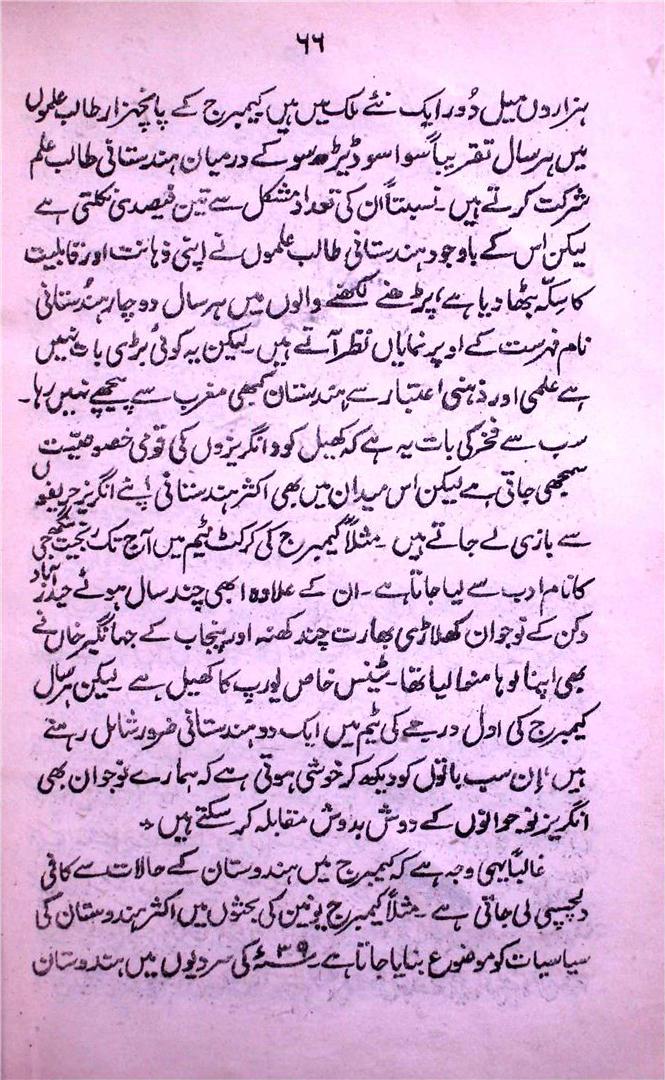 ۶۶
ہزاروں میل دُور ایک نئے ملک میں ہیں کیمبرج کے پانچہزار طالب علموں
میں ہر سال تقریباً سوا سو ڈیڑھ سو کے درمیان ہندستانی طالب علم
شرکت کرتے ہیں۔ نسبتاً ان کی تعداد مشکل سے تین فیصدی نکلتی ہے
لیکن اس کے باوجود ہندستانی طالب علموں نے اپنی ذہانت اور قابلیت
کا سکہّ بٹھا دیا ہے، پڑھنے لکھنے والوں میں ہر سال دو چار ہندُستانی
نام فہرست کے اوپر نمایاں نظر آتے ہیں۔ لیکن یہ کوئی بڑی بات نہیں
ہے علمی اور ذہنی اعتبار سے ہندستان کبھی مغرب سے پیچھے نہیں رہا۔
سب سے فخر کی بات یہ ہے کہ کھیل کود انگریزوں کی قومی خصوصیّت
سمجھی جاتی ہے لیکن اس میدان میں بھی اکثر ہندستانی اپنے انگریز حریفوں
سے بازی لے جاتے ہیں۔ مثلاً کیمبرج کی کرکٹ ٹیم میں آج تک رنجیت سنگھ جی
کا نام ادب سے لیا جاتا ہے۔ ان کے علاوہ ابھی چند سال ہوئے حیدرآباد
دکن کے نوجوان کھلاڑی بھارت چند کھنہ اور پنجاب کے جہانگیر خاں نے
بھی اپنا لوہا منوا لیا تھا۔ ٹینس خاص یورپ کا کھیل ہے۔ لیکن ہر سال
کیمبرج کی اول درجے کی ٹیم میں ایک دو ہندستانی ضرور شامل رہتے
ہیں، اِن سب باتوں کو دیکھ کر خوشی ہوتی ہے کہ ہمارے نوجوان بھی
انگریز نوجوانوں کے دوش بدوش مقابلہ کر سکتے ہیں ٭
غالباً یہی وجہ ہے کہ کیمبرج میں ہندوستان کے حالات سے کافی
دلچسپی لی جاتی ہے۔ مثلاً کیمبرج یونین کی بحثوں میں اکثر ہندوستان کی
سیاسیات کو موضوع بنایا جاتا ہے۔ ۳۹ء کی سردیوں میں ہندوستان